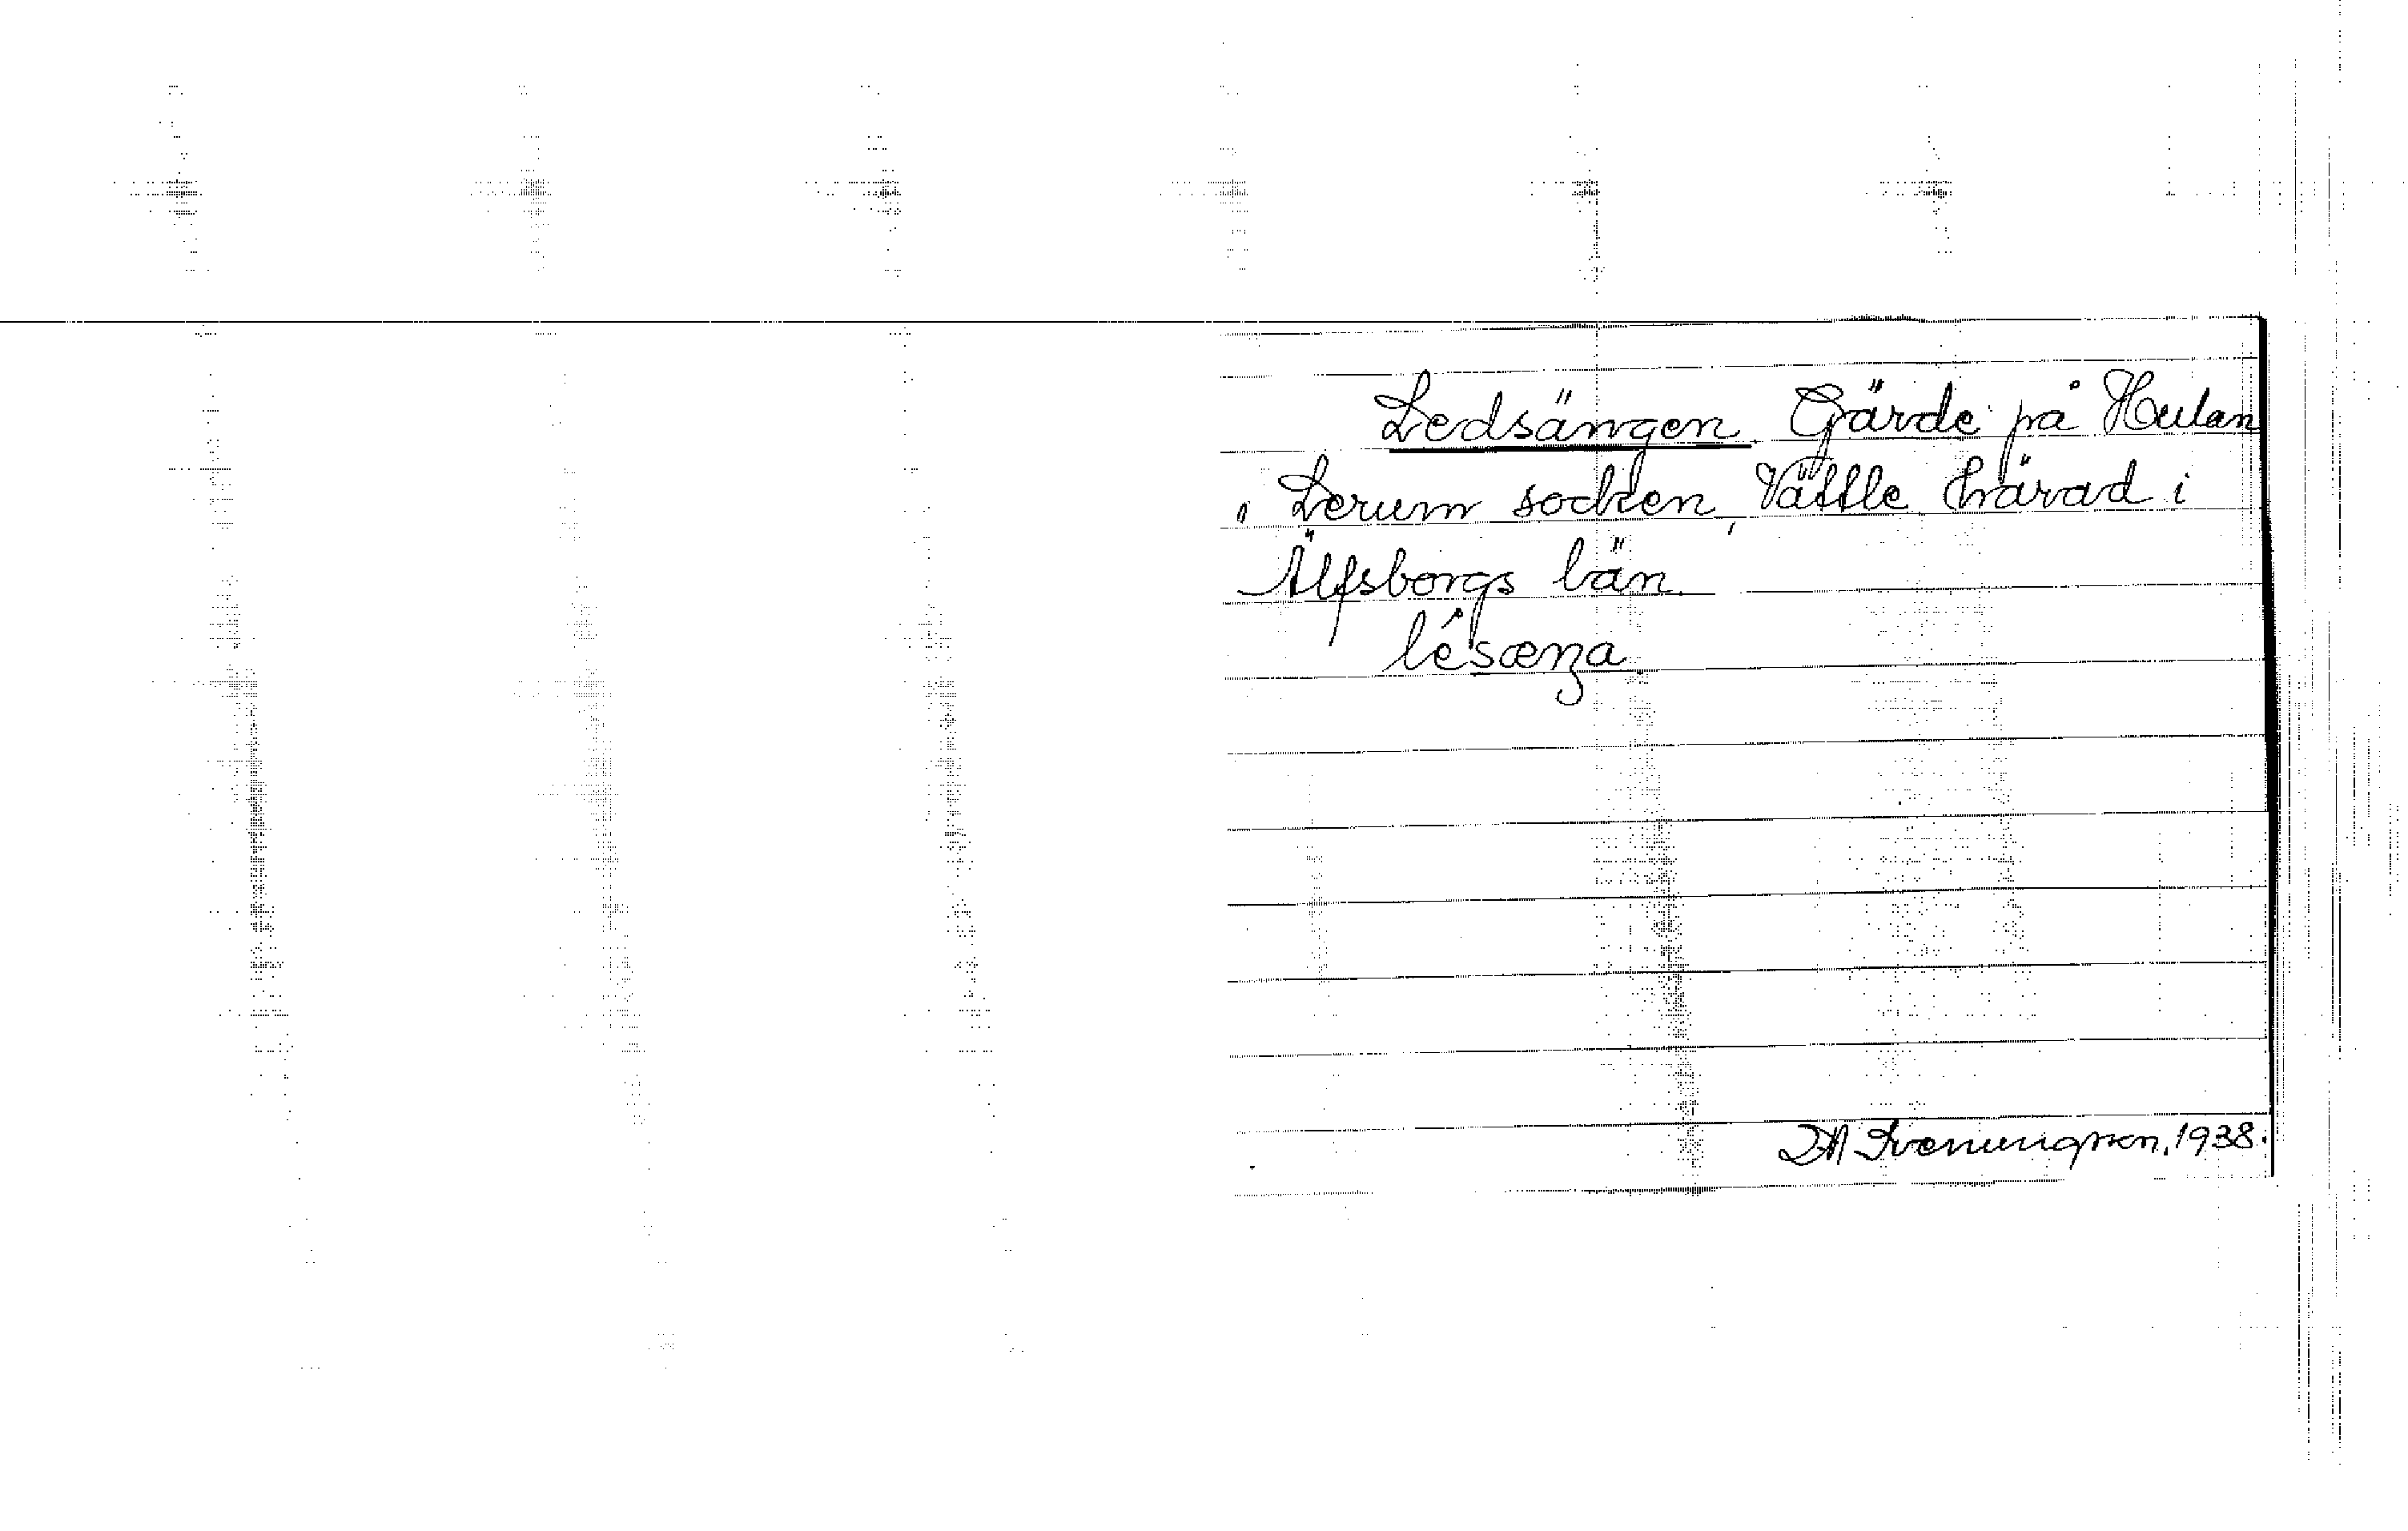 Ledsängen. Gärde på Hulan
i Lerum socken, Vättle härad i
Älfsborgs län.
lésæŋa
DA Svenungson. 1938.